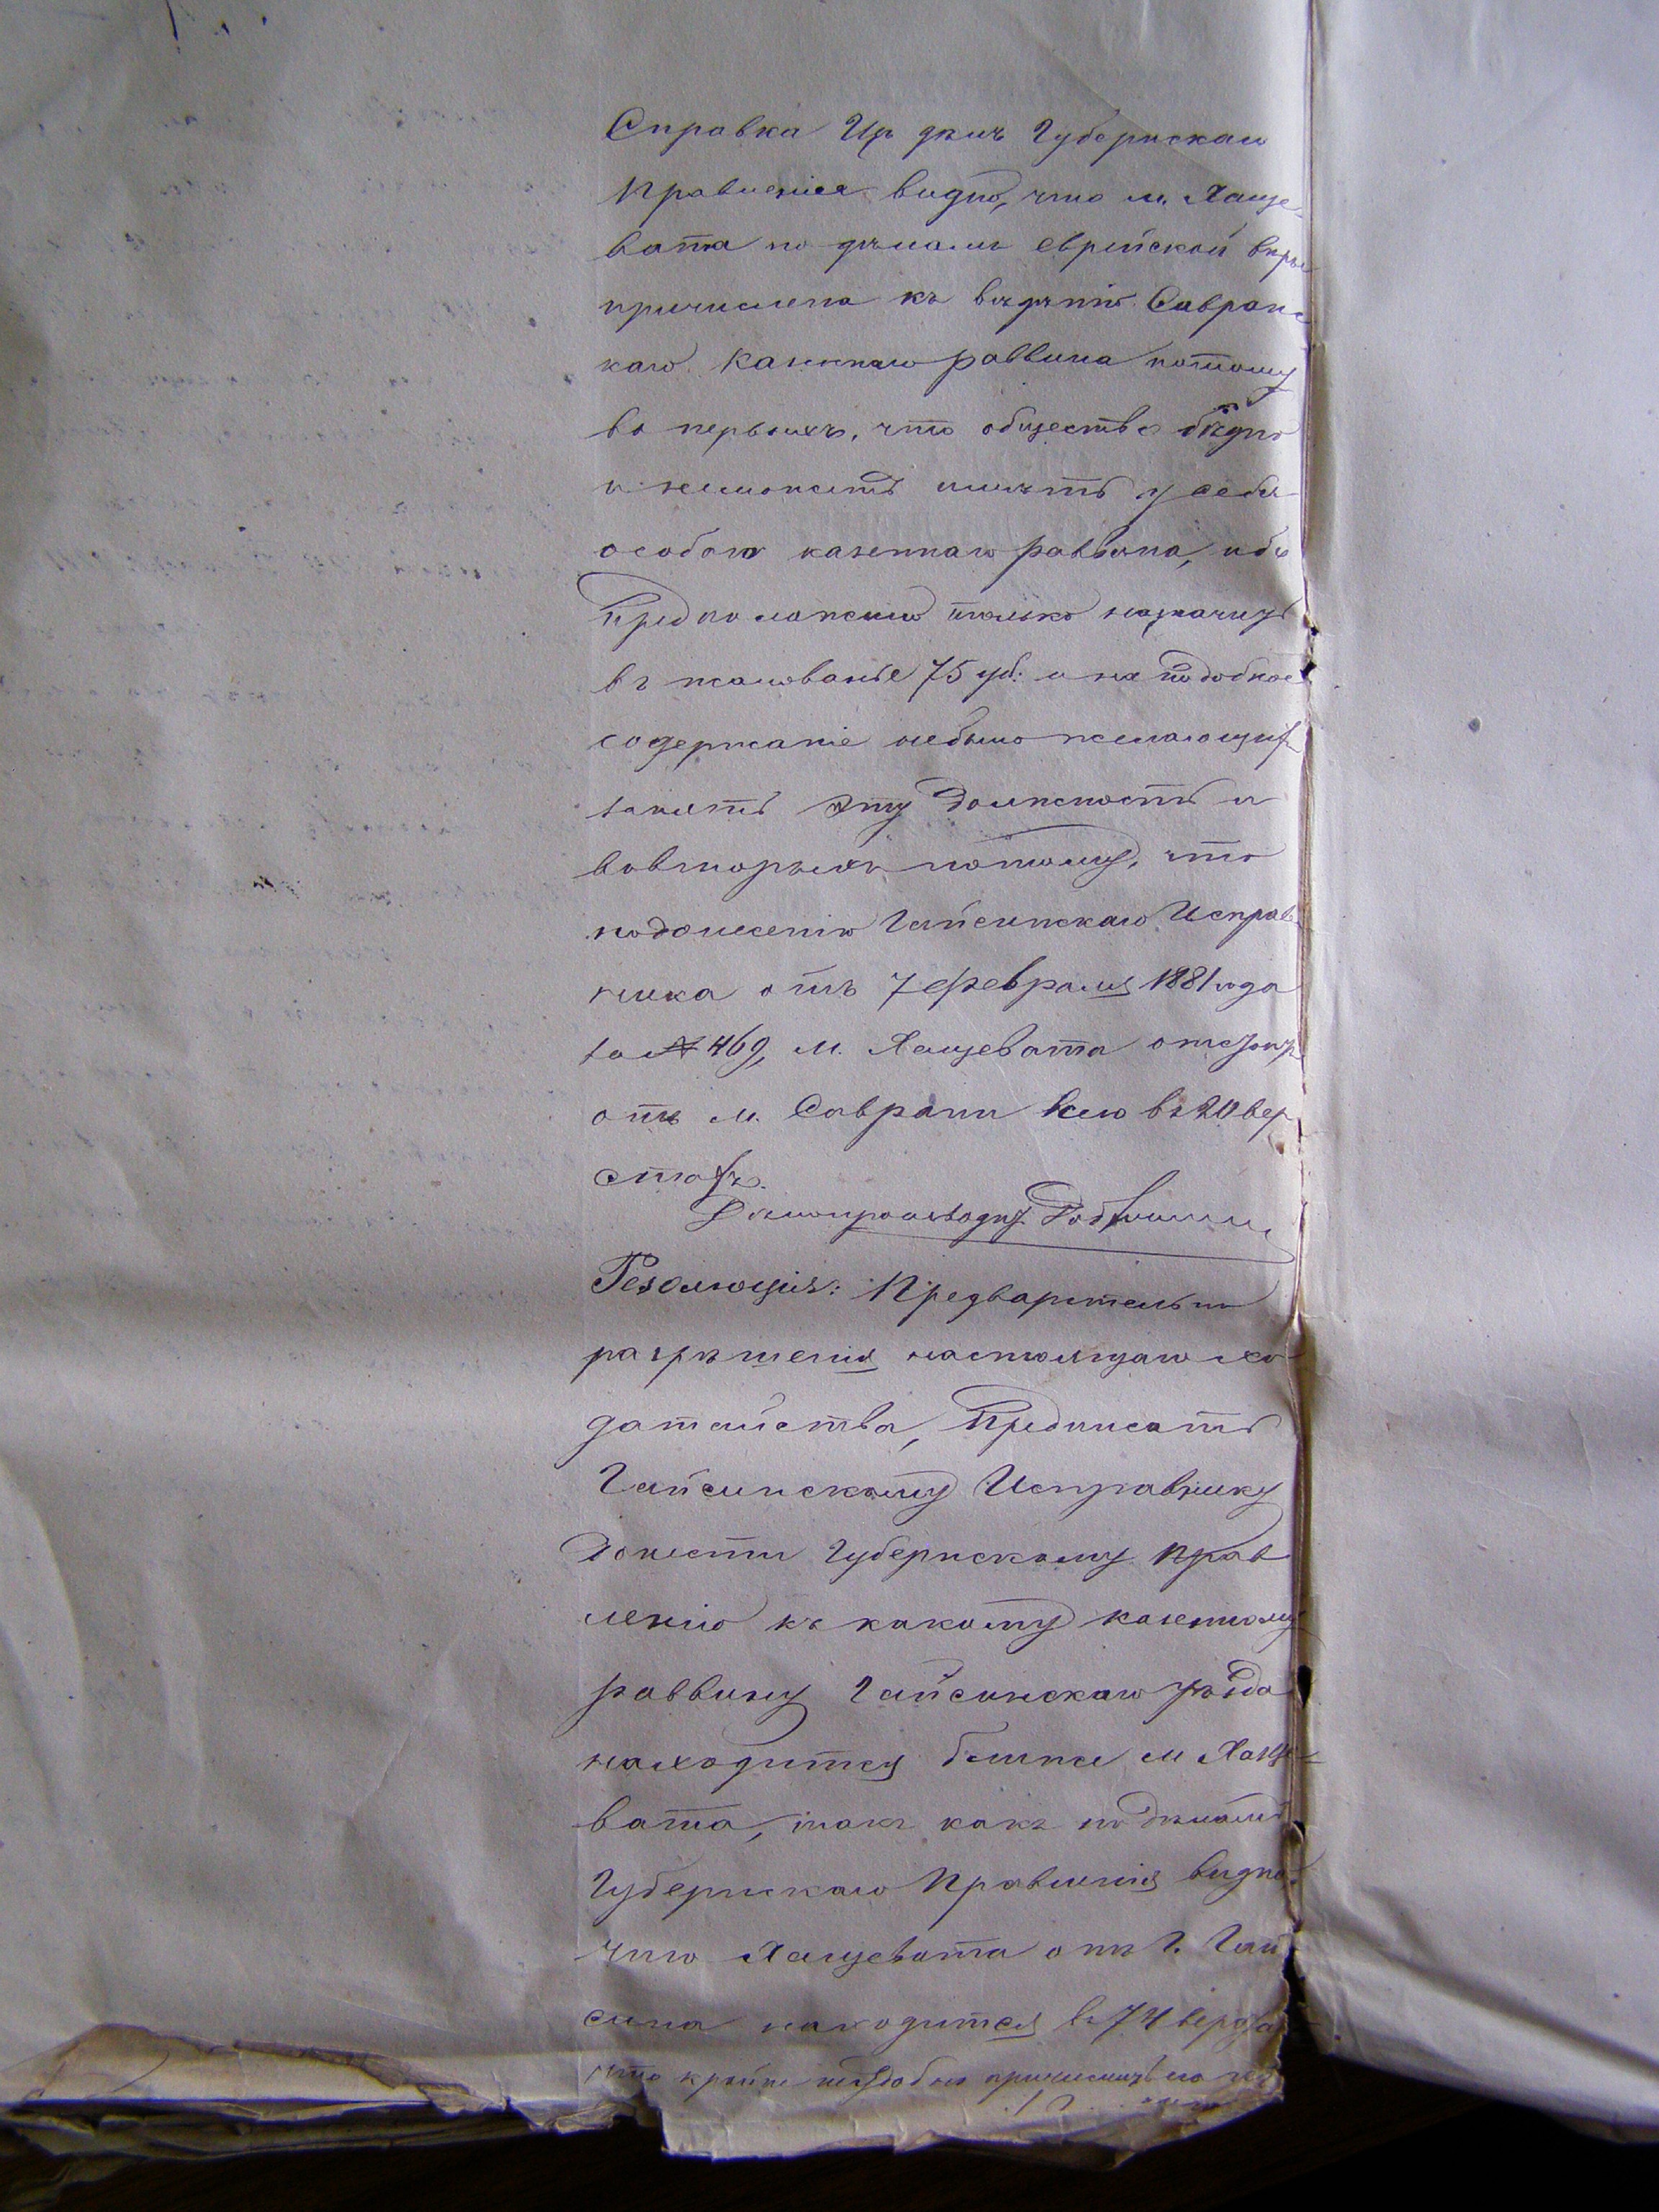 Справка Изъ дѣлъ Губернскаго
Правленія видно, что м. Хаще-
вата по дѣламъ еврейской вѣры
причислена къ вѣдѣнію Савранс
каго казеннаго раввина потому
во первыхъ, что общество бѣдно
и неможетъ имѣть у себя
особаго казеннаго раввина, ибо
предположило только назначить
въ жалованье 75 руб. и на подобное
содержаніе небыло желающихъ
занять эту должность и
вовторыхъ потому, что
подонесенію Гайсинскаго Исправ
ника отъ 7 февраля 1881 года
за № 469, м. Хащевата отстоитъ
отъ м. Саврани всего въ 20 вер
стахъ.
Дѣлопроизводит.
Резолюція: Предварительно
разрѣшенія настоящаго хо-
датайства, предписать
Гайсинскому Исправнику
донести Губернскому Прав
ленію къ какому казенному
раввину Гайсинскаго уѣзда
находится ближе м Хаще-
вата, такъ какъ по дѣламъ
Губернскаго Правленія видно
что Хащевата отъ г. Гай
сина находится въ 74 верстах
что крайне неудобно причислить его къ